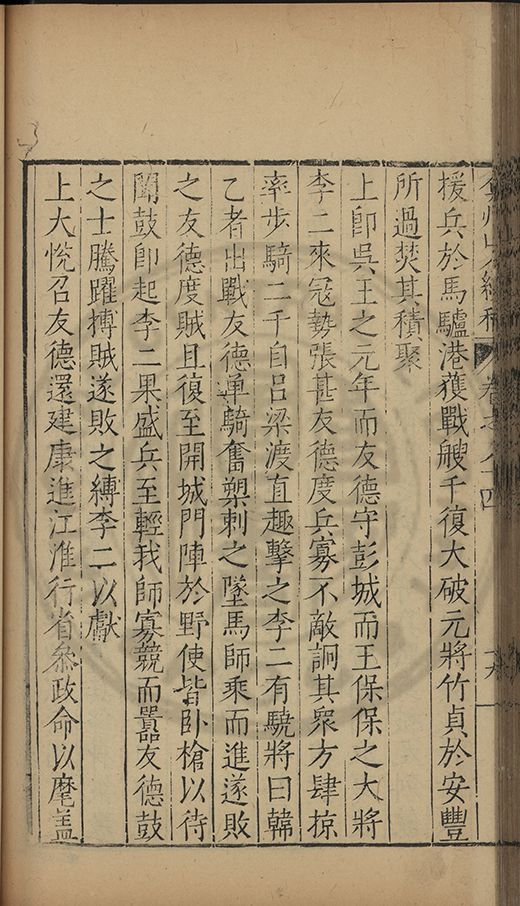 弇州山人續稿 卷之八十四 十八
援兵於馬驢港獲戰艘千復大破元將竹貞於安豐
所過焚其積聚
上卽吳王之元年而友德守彭城而王保保之大將
李二來寇勢張甚友德度兵寡不敵詗其衆方肆掠
率步騎二千自呂梁渡直趣擊之李二有驍將曰韓
乙者出戰友德單騎奮槊刺之墜馬師乘而進遂敗
之友德度賊且復至開城門陣於野使皆卧槍以待
聞鼓卽起李二果盛兵至輕我師寡競而囂友德鼓
之士騰躍搏賊遂敗之縛李二以獻
上大悅召友德還建康進江淮行省叅政命以麾盖